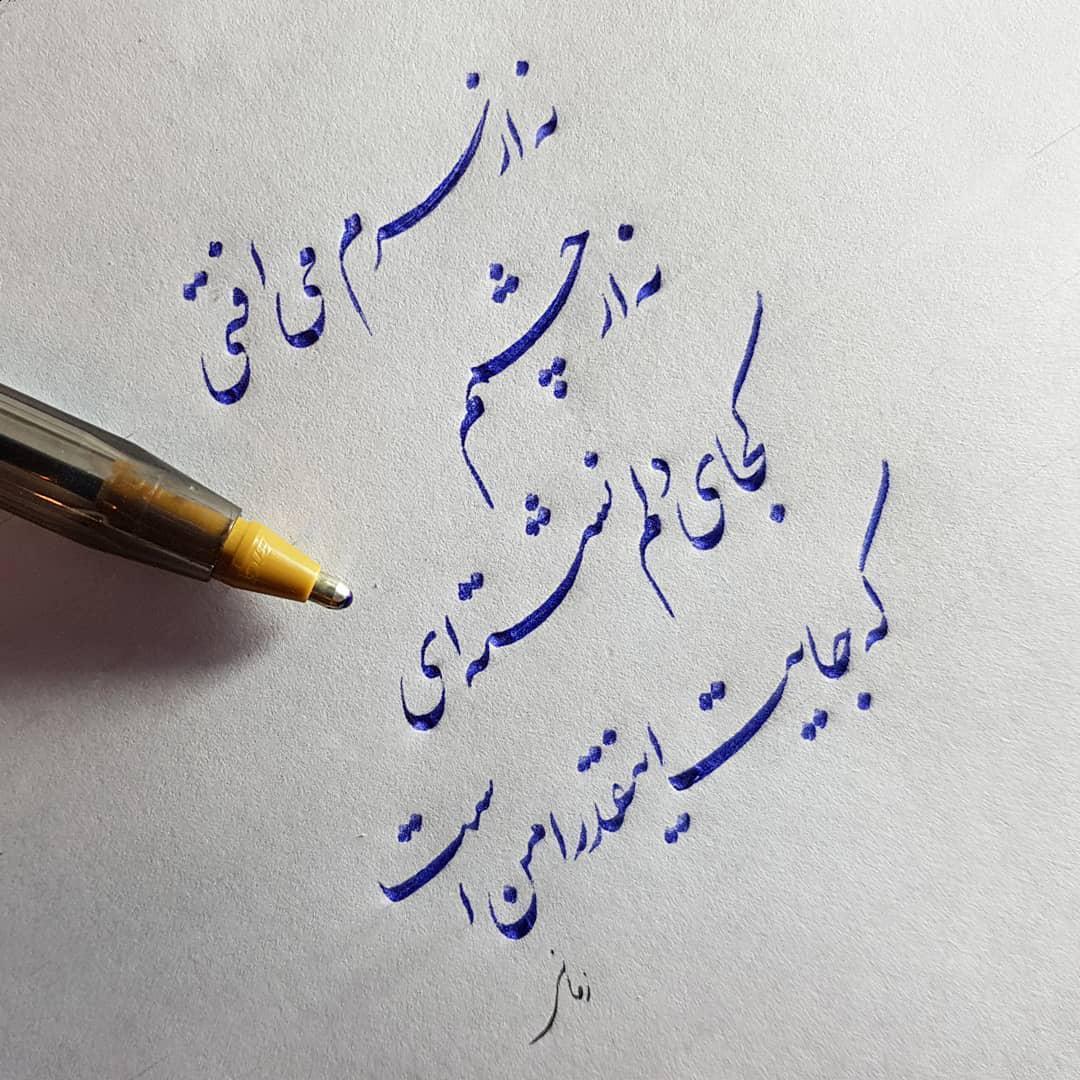 نه از سرم می افتی
نه از چشمم
کجای دلم نشسته ای
که جایت اینقدر امن است